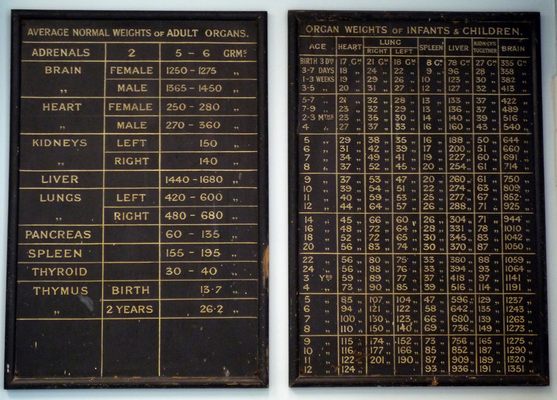 AVERAGE NORMAL WEIGHTS OF ADULT ORGANS.
ADRENALS 2 5 - 6 GRMS
BRAIN FEMALE 1250 - 1275 „
„ MALE 1365 - 1450 „
HEART FEMALE 250 - 280 „
„ MALE 270 - 360 „
KIDNEYS LEFT 150 „
RIGHT 140 „
LIVER 1440 - 1680 „
LUNGS LEFT 420 - 600 „
„ RIGHT 480 - 680 „
PANCREAS 60 - 135 „
SPLEEN 155 - 195 „
THYROID 30 - 40 „
THYMUS BIRTH 13·7 „
2 YEARS 26·2 „
ORGAN WEIGHTS OF INFANTS & CHILDREN.
AGE HEART LUNG SPLEEN LIVER KIDNEYS TOGETHER BRAIN
RIGHT LEFT
BIRTH 3 DYS 17 GMS 21 GMS 18 GMS 8 GMS 78 GMS 27 GMS 335 GMS
3-7 DAYS 18 „ 24 „ 22 „ 9 „ 96 „ 28 „ 358 „
1-3 WEEKS 19 „ 29 „ 26 „ 10 „ 123 „ 30 „ 382 „
3-5 „ 20 „ 31 „ 27 „ 12 „ 127 „ 32 „ 413 „
5-7 „ 21 „ 32 „ 28 „ 13 „ 133 „ 37 „ 422 „
7-9 „ 23 „ 32 „ 29 „ 13 „ 136 „ 37 „ 489 „
2-3 MTHS 23 „ 35 „ 30 „ 14 „ 140 „ 39 „ 516 „
4 „ 27 „ 37 „ 33 „ 16 „ 160 „ 43 „ 540 „
5 „ 29 „ 38 „ 35 „ 16 „ 188 „ 50 „ 644 „
6 „ 31 „ 42 „ 39 „ 17 „ 200 „ 51 „ 660 „
7 „ 34 „ 49 „ 41 „ 19 „ 227 „ 60 „ 691 „
8 „ 37 „ 52 „ 45 „ 20 „ 254 „ 61 „ 714 „
9 „ 37 „ 53 „ 47 „ 20 „ 260 „ 61 „ 750 „
10 „ 39 „ 54 „ 51 „ 22 „ 274 „ 63 „ 809 „
11 „ 40 „ 59 „ 53 „ 25 „ 277 „ 67 „ 852 „
12 „ 44 „ 64 „ 57 „ 26 „ 288 „ 71 „ 925 „
14 „ 45 „ 66 „ 60 „ 26 „ 304 „ 71 „ 944 „
16 „ 48 „ 72 „ 64 „ 28 „ 331 „ 78 „ 1010 „
18 „ 52 „ 72 „ 65 „ 30 „ 345 „ 83 „ 1042 „
20 „ 56 „ 83 „ 74 „ 30 „ 370 „ 87 „ 1050 „
22 „ 56 „ 80 „ 75 „ 33 „ 380 „ 88 „ 1059 „
24 „ 56 „ 88 „ 76 „ 33 „ 394 „ 93 „ 1064 „
3 YRS 59 „ 89 „ 77 „ 37 „ 418 „ 97 „ 1141 „
4 „ 73 „ 90 „ 85 „ 39 „ 516 „ 114 „ 1191 „
5 „ 85 „ 107 „ 104 „ 47 „ 596 „ 129 „ 1237 „
6 „ 94 „ 121 „ 122 „ 58 „ 642 „ 135 „ 1243 „
7 „ 100 „ 130 „ 123 „ 66 „ 680 „ 139 „ 1263 „
8 „ 110 „ 150 „ 140 „ 69 „ 736 „ 149 „ 1273 „
9 „ 115 „ 174 „ 152 „ 73 „ 756 „ 165 „ 1275 „
10 „ 116 „ 177 „ 166 „ 85 „ 852 „ 187 „ 1290 „
11 „ 122 „ 201 „ 190 „ 87 „ 909 „ 189 „ 1320 „
12 „ 124 „ 93 „ 936 „ 191 „ 1351 „